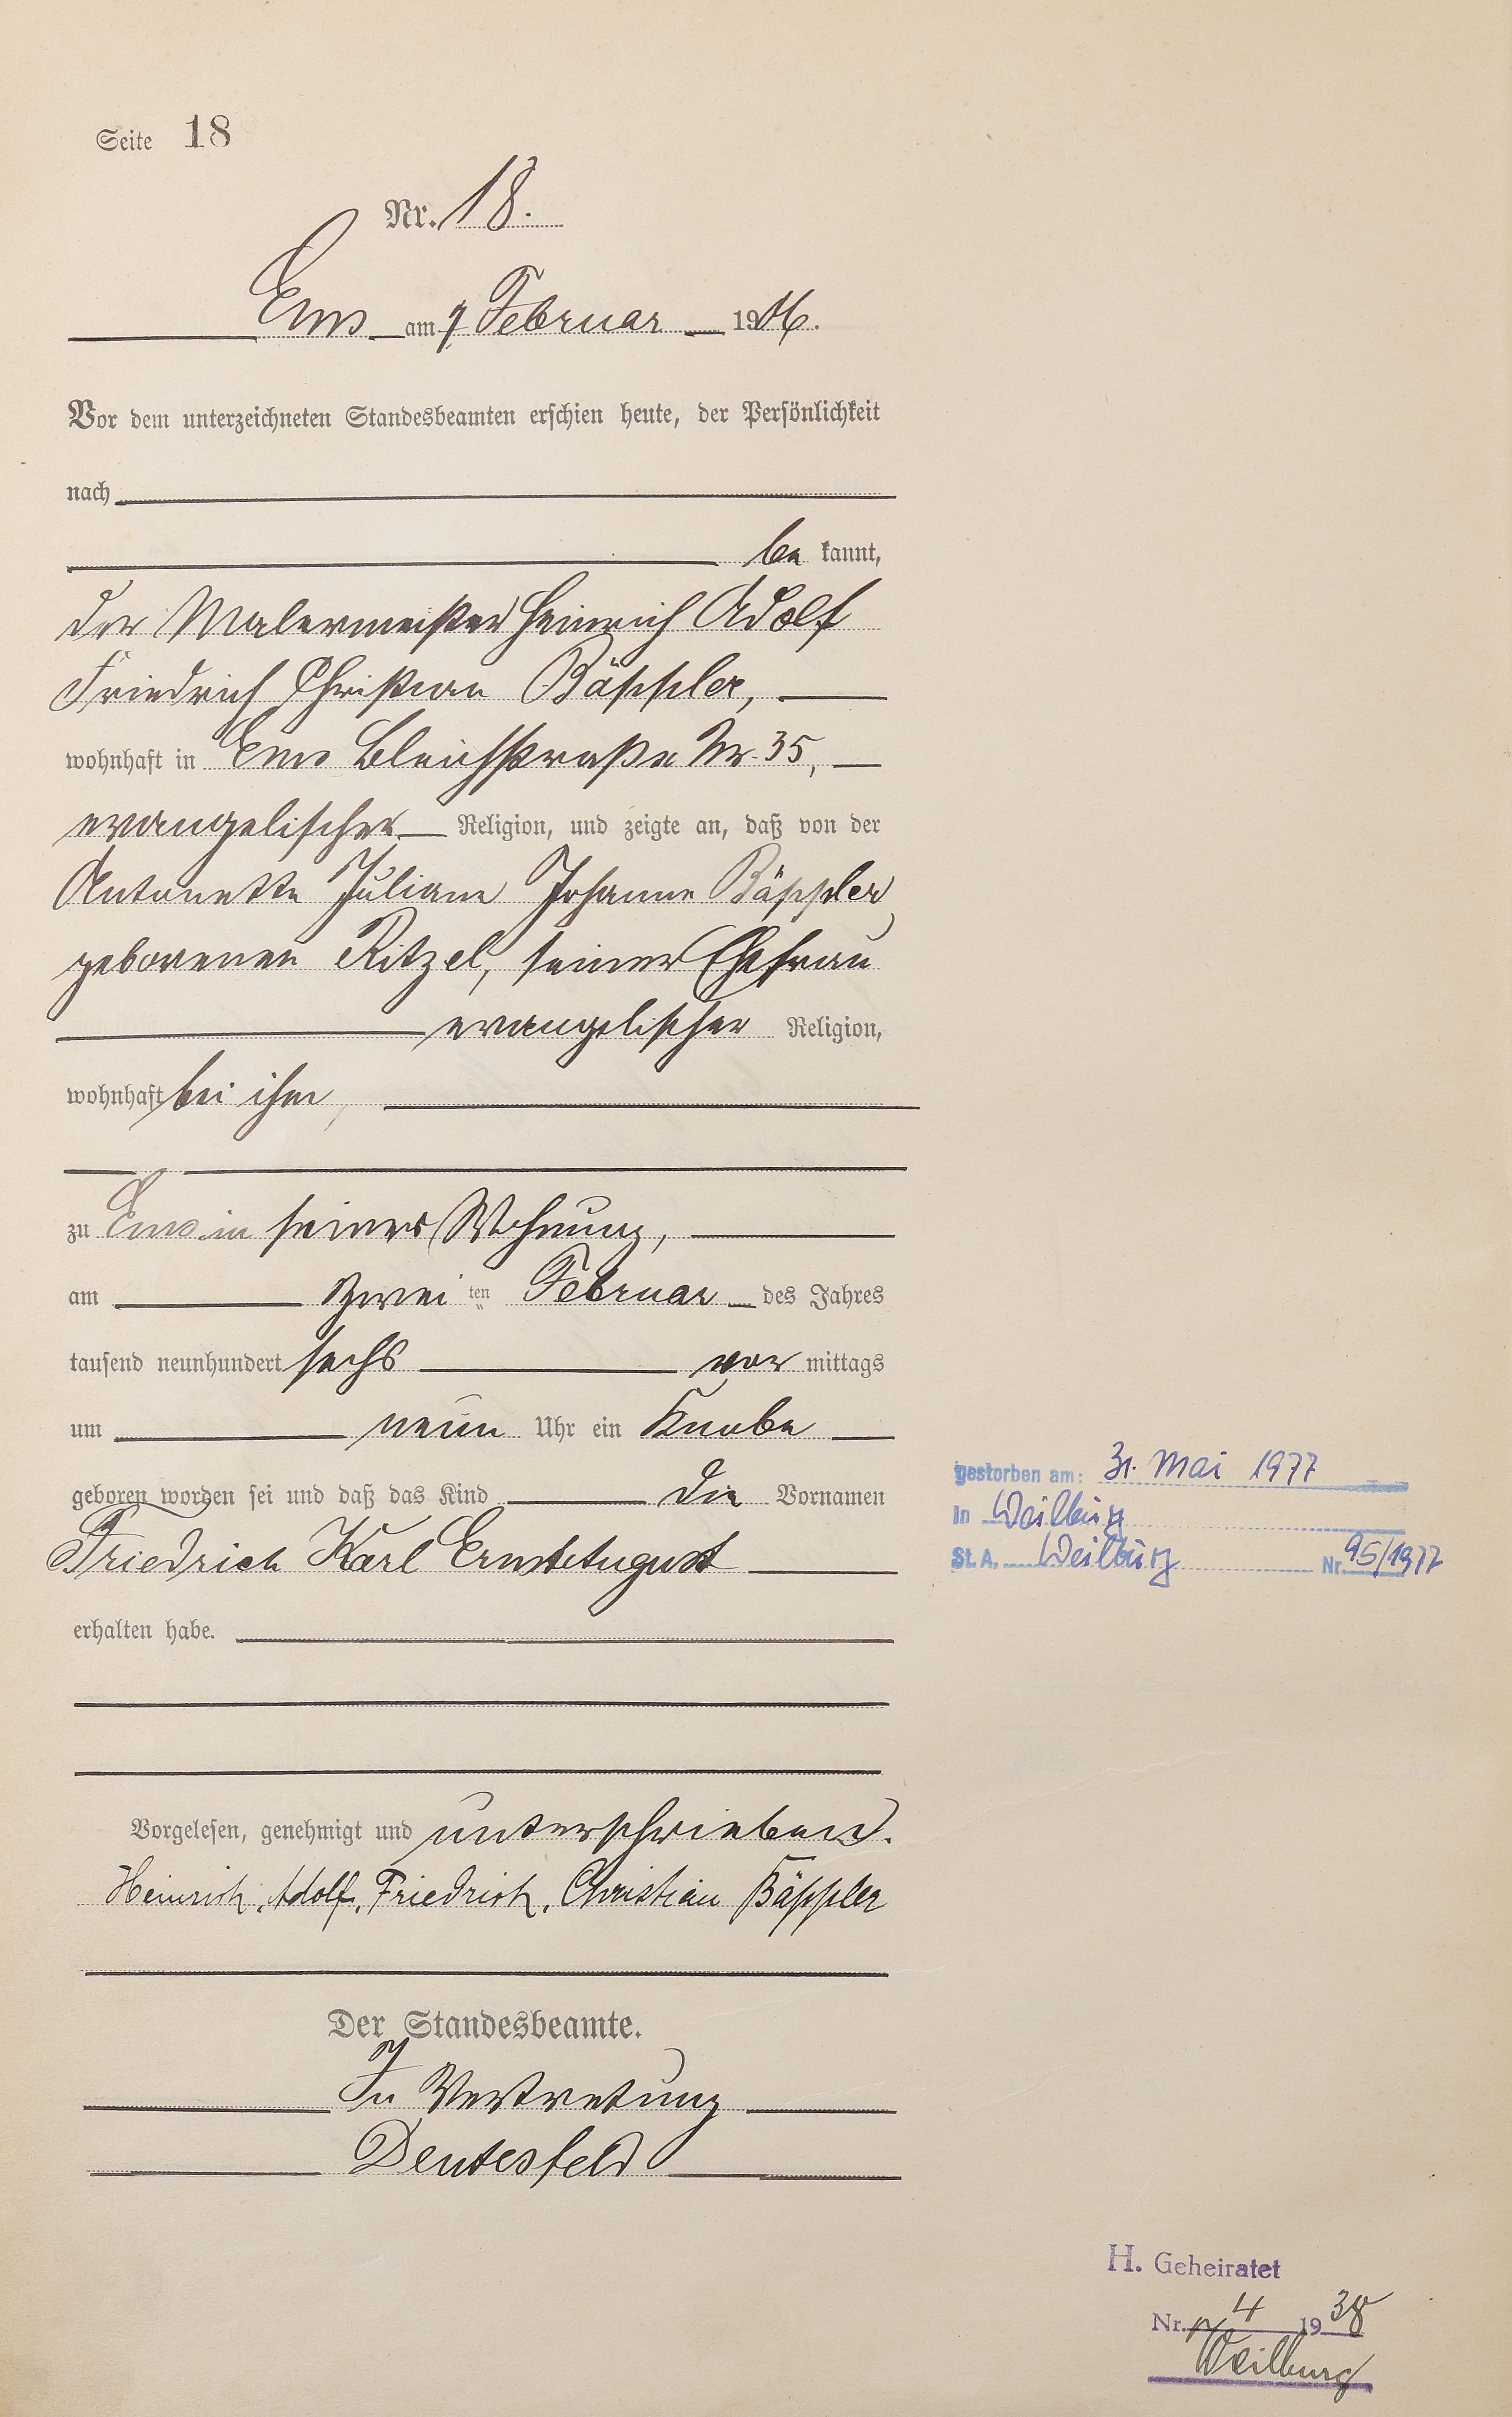 Seite 18
Nr. 18.
Ems am 7 Februar 1906.
Vor dem unterzeichneten Standesbeamten erschien heute, der Persönlichkeit
nach
be kannt,
der Malermeister Heinrich Adolf
Friedrich Christian Bäppler,
wohnhaft in Ems Bleichstraße Nr. 35,
evangelischer Religion, und zeigte an, daß von der
Antonette Juliane Johanne Bäppler
geborenen Ritzel, seiner Ehefrau
evangelischer Religion,
wohnhaft bei ihm,
zu Ems in seiner Wohnung,
am zwei ten Februar des Jahres
tausend neunhundert sechs vor mittags
um neun Uhr ein Knabe
geboren worden sei und daß das Kind die Vornamen
Friedrich Karl Ernst August
erhalten habe.
Vorgelesen, genehmigt und unterschrieben.
Heinrich, Adolf, Friedrich, Christian Bäppler
Der Standesbeamte.
In Vertretung
gestorben am: 31. Mai 1977
in Weilburg
St. A. Weilburg Nr. 95/1977
H. Geheiratet
Nr. 4 1938
Weilburg